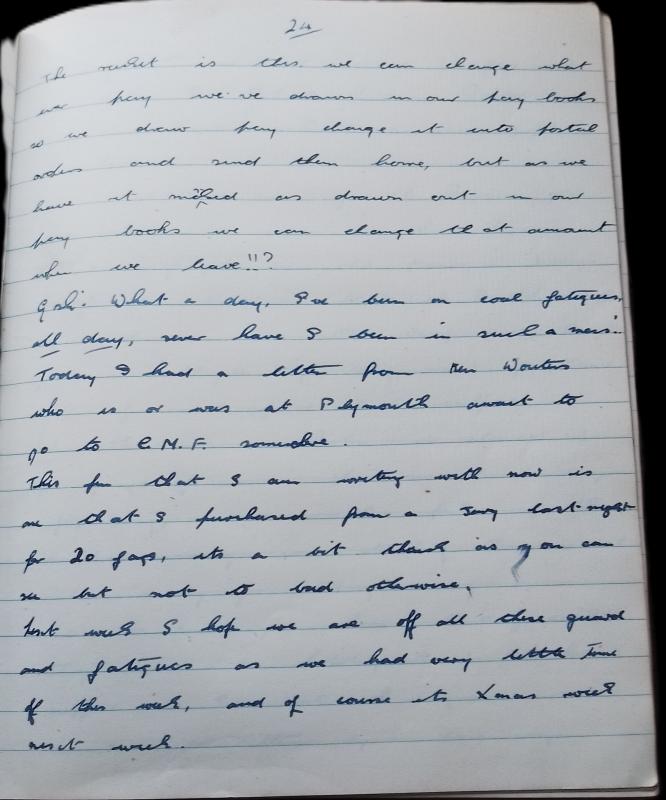 24
The racket is this we can change what
ever pay we've drawn in our pay books
so we draw pay change it into postal
orders and send them home, but as we
have it marked as drawn out in our
pay books we can change that amount
when we leave!!?
Gosh. What a day, I've been on coal fatigues,
all day, never have I been in such a mess..
Today I had a letter from Ken Wouters
who is or was at Plymouth await to
go to C.M.F. somewhere.
This pen that I am writing with now is
one that I purchased from a Jerry last night
for 20 fags, its a bit thick as you can
see but not to bad otherwise,
Next week I hope we are off all these guard
and fatigues as we had very little time
off this week, and of course its Xmas week
next week.